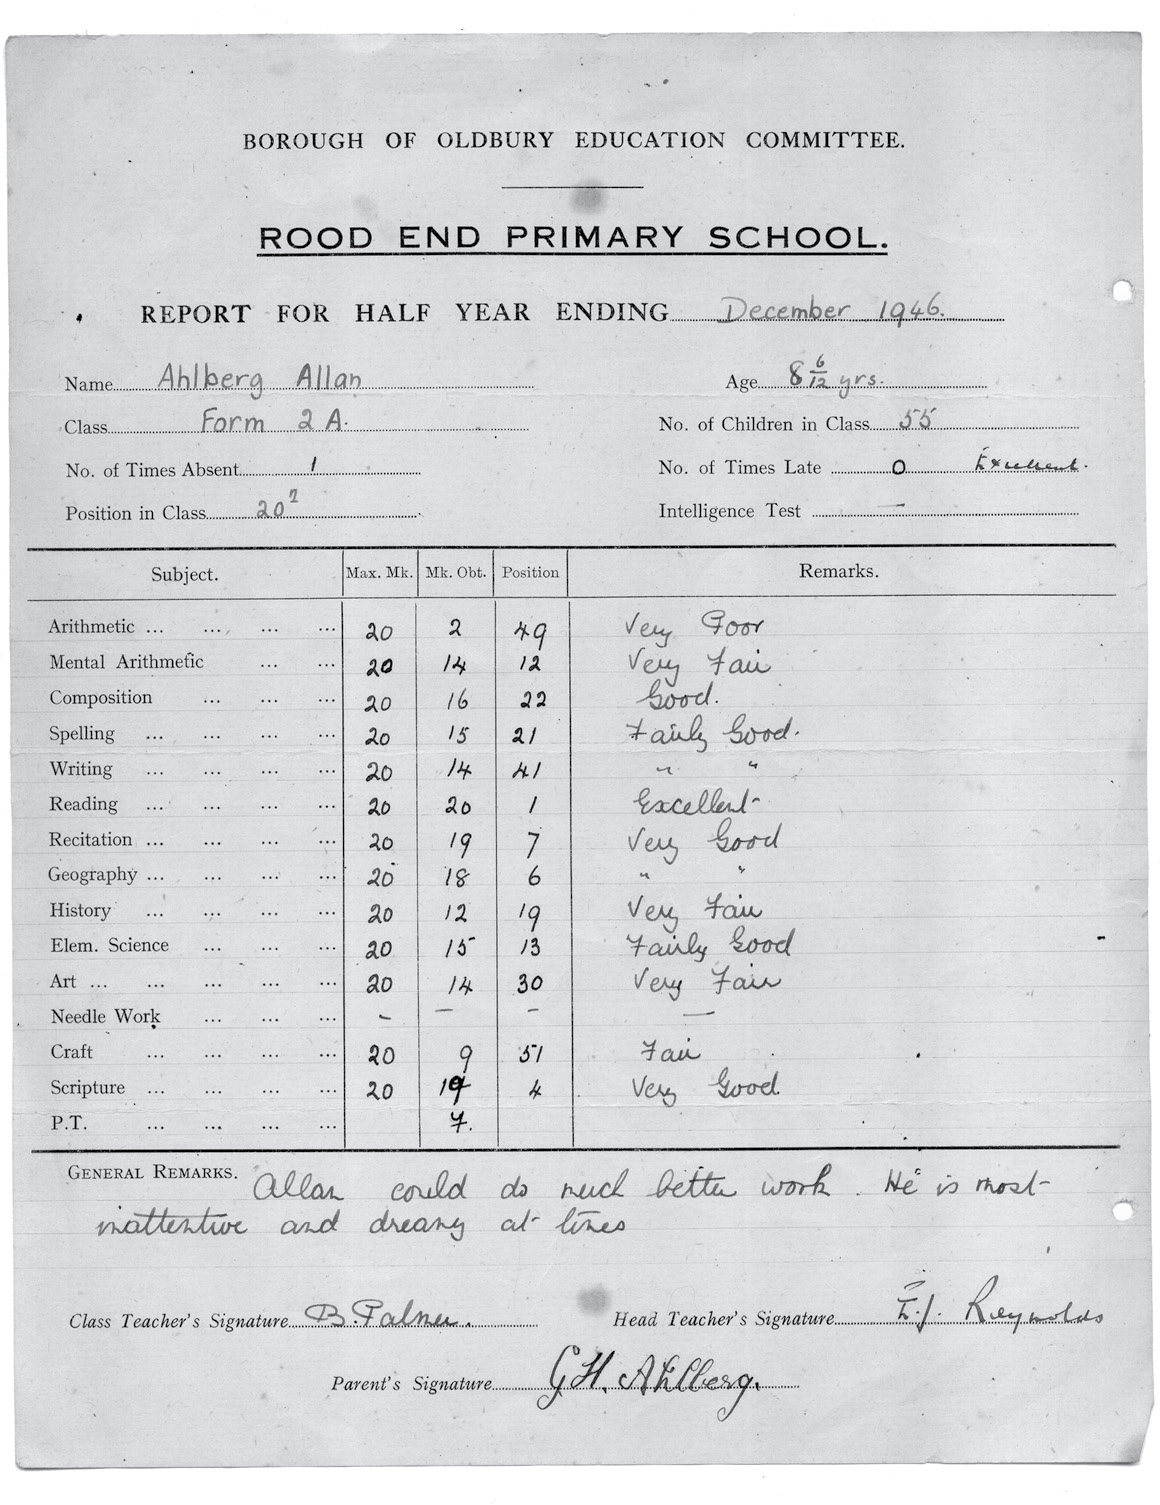 BOROUGH OF OLDBURY EDUCATION COMMITTEE.
ROOD END PRIMARY SCHOOL.
REPORT FOR HALF YEAR ENDING December 1946.
Name Ahlberg Allan Age 8 6/12 yrs.
Class Form 2 A. No. of Children in Class 55
No. of Times Absent 1 No. of Times Late 0 Excellent.
Position in Class 20 Intelligence Test —
Subject. Max. Mk. Mk. Obt. Position Remarks.
Arithmetic ... ... ... ... 20 2 49 Very Poor
Mental Arithmetic ... ... 20 14 12 Very Fair
Composition ... ... ... 20 16 22 Good.
Spelling ... ... ... ... 20 15 21 Fairly Good.
Writing ... ... ... ... 20 14 41 " "
Reading ... ... ... ... 20 20 1 Excellent
Recitation ... ... ... ... 20 19 7 Very Good
Geography ... ... ... ... 20 18 6 " "
History ... ... ... ... 20 12 19 Very Fair
Elem. Science ... ... ... 20 15 13 Fairly Good
Art ... ... ... ... ... 20 14 30 Very Fair
Needle Work ... ... ... – – – —
Craft ... ... ... ... 20 9 51 Fair
Scripture ... ... ... ... 20 19 4 Very Good
P.T. ... ... ... ... 7.
GENERAL REMARKS. Allan could do much better work. He is most
inattentive and dreamy at times
Class Teacher's Signature B. Palmer. Head Teacher's Signature E.J. Reynolds
Parent's Signature G.H. Ahlberg.